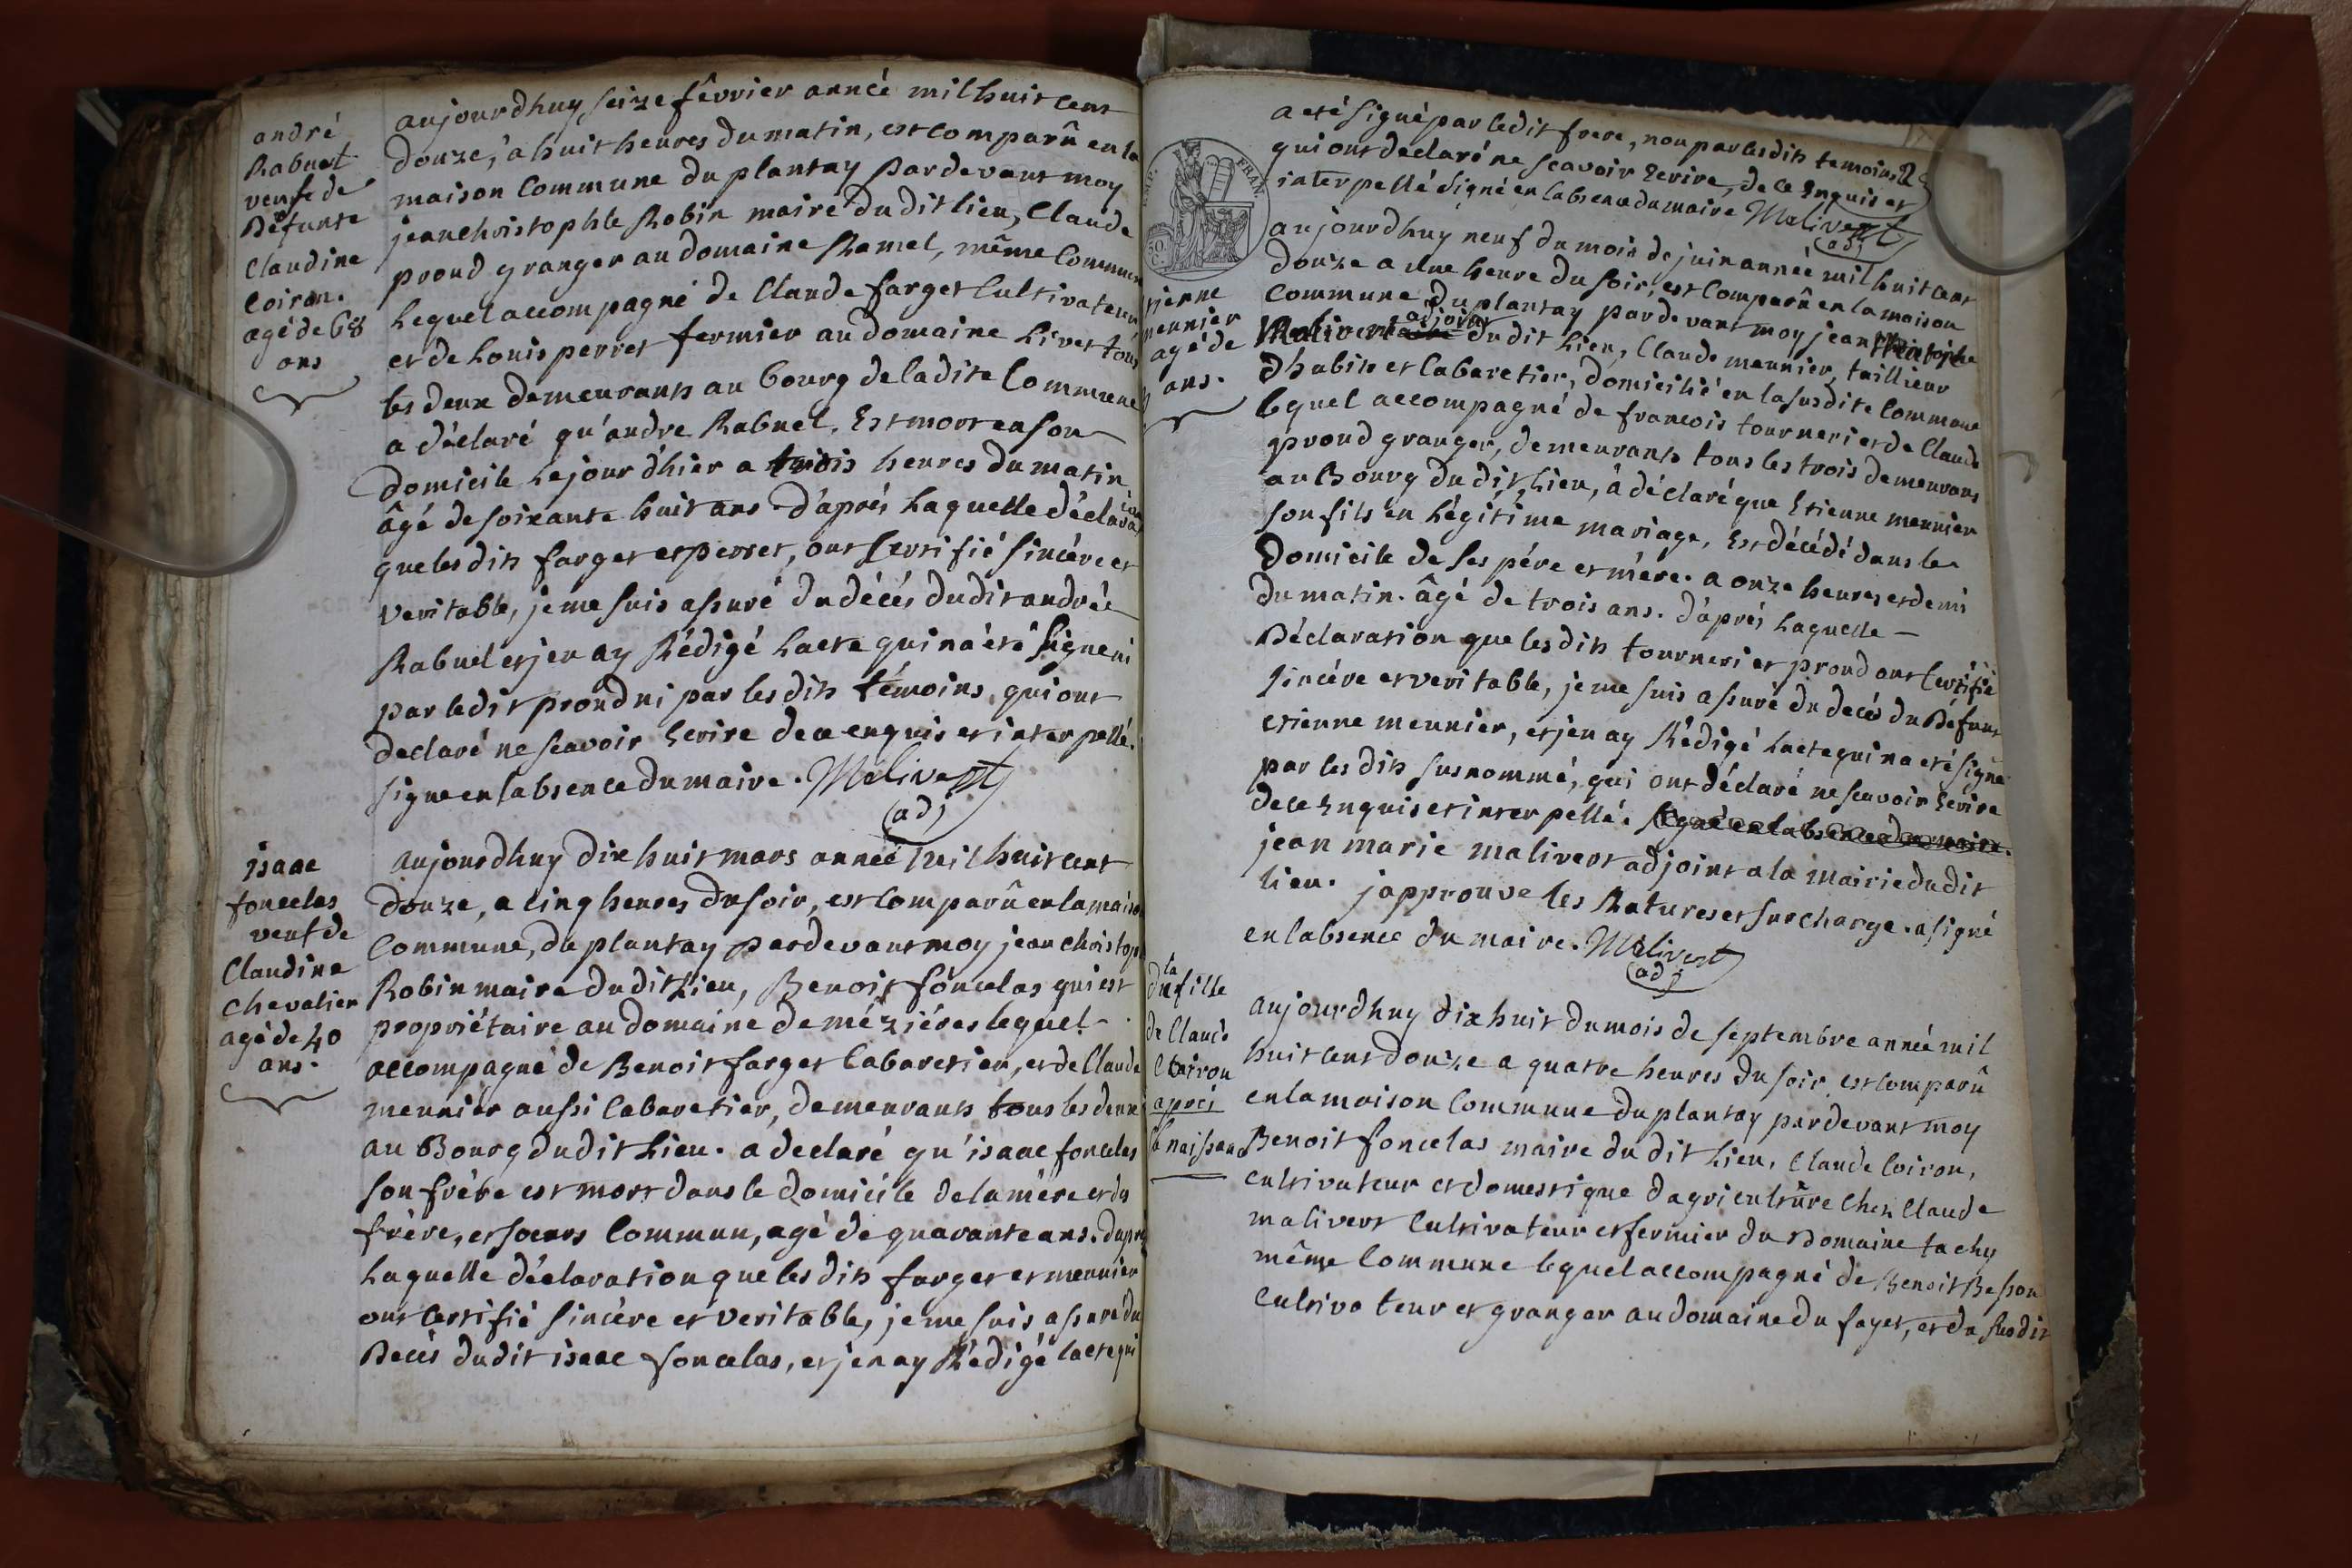 andré
Rabuel
veuf de
défunte
Claudine
Coiron.
agé de 68
ans
aujourdhuy seize février année mil huit cent
douze, à huit heures du matin, est comparû en la
maison Commune du plantay pardevant moy
jean christophle Robin maire du dit lieu, Claude
proud granger au domaine Ramel, même Commune
Lequel accompagné de Claude farget Cultivateur
et de Louis perret fermier au domaine Livet tous
les deux demeurants au bourg de ladite Commune
a déclaré qu'andre Rabuel. Est mort en son
domicile Le jour d'hier a trois heures du matin
âgé de soixante huit ans d'aprés Laquelle déclaration
que les dits farget et perret, ont Certifié sincère et
veritable, je me suis assuré du décés du dit andrée
Rabuel et jen ay Rédigé Lacte qui n'a été signe ni
par le dit proud ni par les dits témoins qui ont
declaré ne scavoir Ecrire de ce enquis et interpellé.
signe en labsence du maire. Malivert
(adj)
isaac
foncelas
veuf de
Claudine
Chevalier
agé de 40
ans.
aujourdhuy dix huit mars année mil huit cent
douze, a cinq heures du soir, est comparû en la maison
Commune, du plantay pardevant moy jean christop
Robin maire du dit Lieu, Benoit foncelas qui est
propriétaire au domaine de méziéres lequel
accompagné de Benoit farget Cabaretier, et de Claude
meunier aussi Cabaretier, demeurants tous les deux
au Bourg du dit Lieu. a declaré qu'isaac foncelas
son frère est mort dans le domicile de la mère et du
frère, et soeurs Commun, agé de quarante ans. d'apré
Laquelle déclaration que les dits farget et meunier
ont certifié sincère et veritable, je me suis assuré du
Decès du dit isaac foncelas, et jen ay Rédigé lacte qui
a eté signé par le dit frere, non par les dits temoins
qui ont declaré ne scavoir Ecrire, de ce Enquis et
interpellé signé en labsence du maire Malivert
(adj)
FRAN.
etienne
meunier
agé de
3
ans.
aujourdhuy neuf du mois de juin année mil huit cent
douze a une heure du soir, est Comparû en la maison
Commune du plantay pardevant moy jean
adjoint
Malivert du dit Lieu, Claude meunier, taillieur
dhabits et Cabaretier, domicilié en la susdite Commune
lequel accompagné de francois tourneri et de Claude
proud granger, demeurants tous les trois demeurans
au Bourg du dit Lieu, à déclaré que Etienne meunier
son fils en Légitime mariage, Est décédé dans le
Domicile de ses pére et mére. a onze heures et demi
du matin. âgé de trois ans. d'après Laquelle —
Déclaration que les dits tourneri et proud ont Certifié
sincére et veritable, je me suis assuré du decés du Défunt
etienne meunier, et jen ay Rédigé Lacte qui na eté signé
par les dits susnommé, qui ont déclaré ne scavoir Ecrire
de ce Enquis et interpellé. signé en labsence du maire.
jean marie malivert adjoint a la mairie du dit
lieu. japprouve les Ratures et surcharge. a signé
en labsence du maire. Malivert
(adj)
la
du fille
de Claude
Coiron
aprés
sa naissance
aujourdhuy dix huit du mois de septembre année mil
huit cent douze a quatre heures du soir est comparû
en la maison Commune du plantay pardevant moy
Benoit foncelas maire du dit Lieu, Claude Coiron,
cultivateur et domestique dagriculture Chez Claude
malivert Cultivateur et fermier du Domaine tachy
même Commune lequel accompagné de Benoit Besson
Cultivateur et granger au domaine du fayet, et du susdit